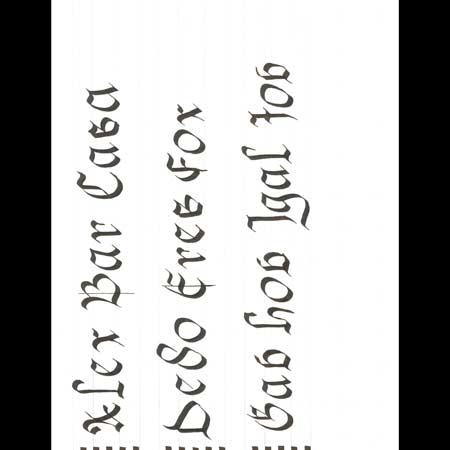 Alex Bar Casa
Dedo Eres Fox
Gas hos Igal